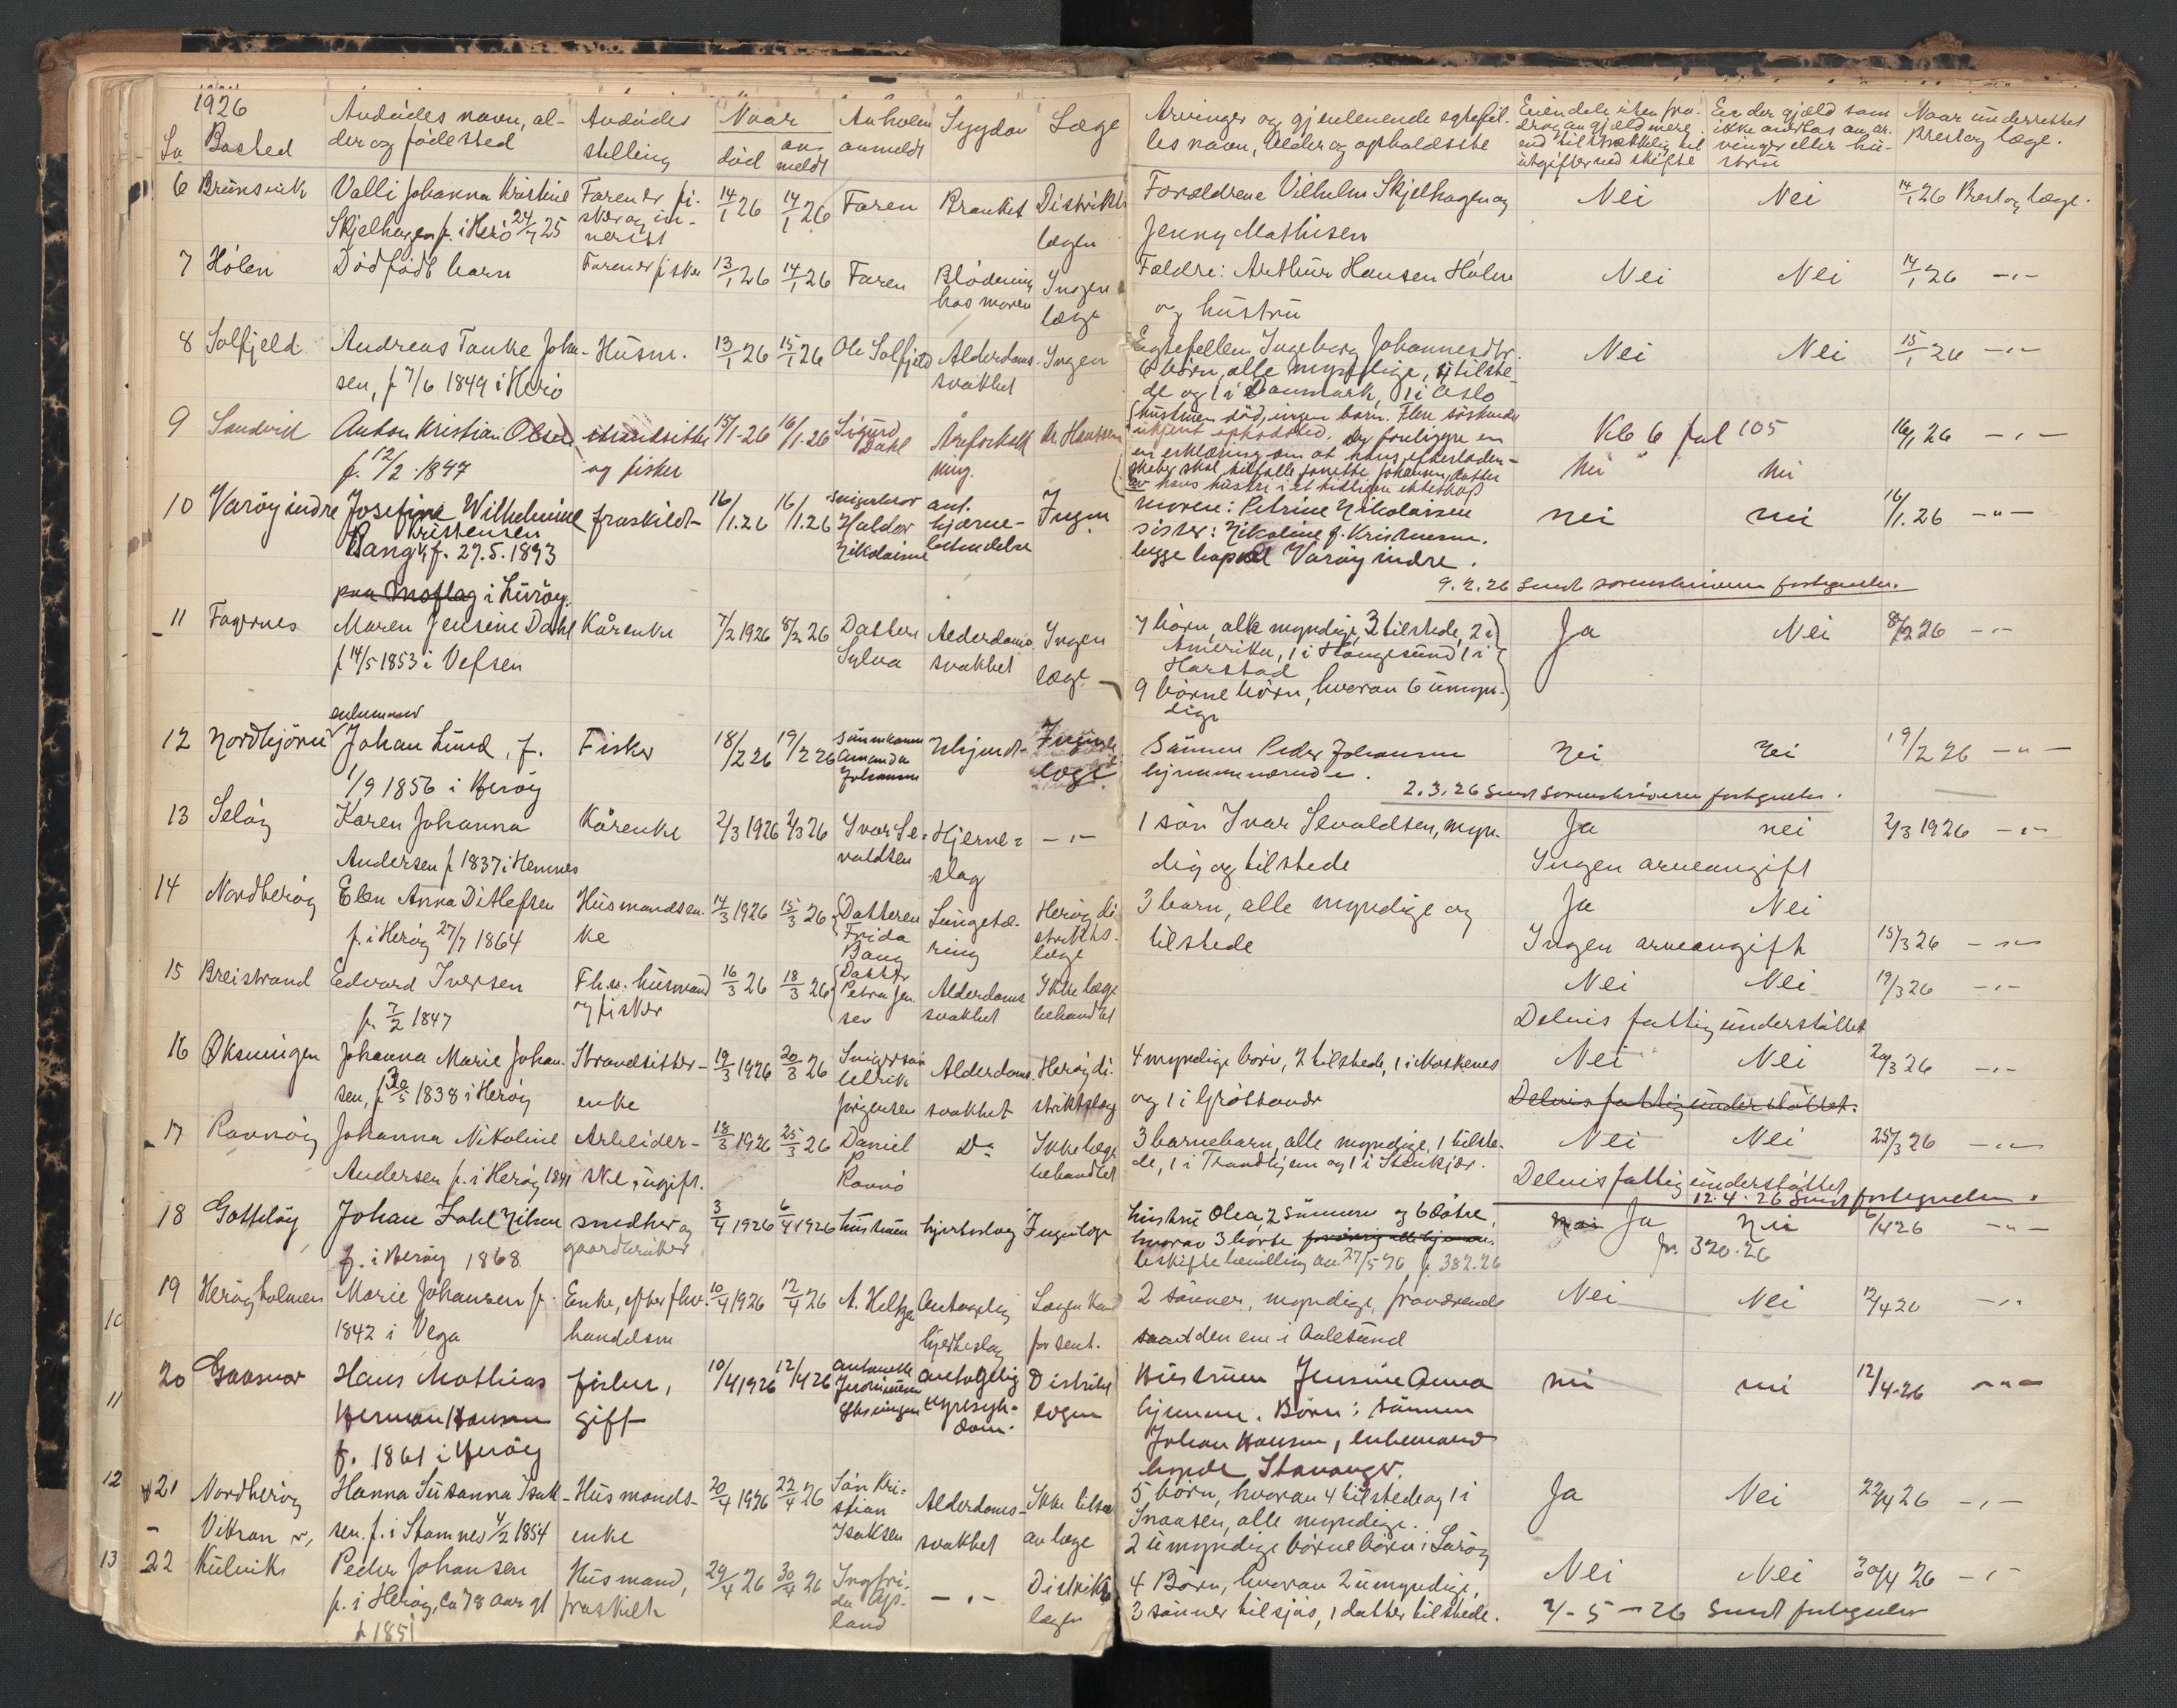 1926
Lø Bosted
Avdødes navn, al-
der og fødested
Avdødes
stilling
Naar
død
an-
meldt
Av hvem
anmeldt
Sygdom
Læge
Arvinger og gjenlevende egtefel-
les navn, alder og opholdssted
Eiendele uten fra-
drag av gjæld mere
end tilstrækkelig til
utgifter ved skifte
Er der gjæld som
ikke overtas av ar-
vinger eller hu-
stru
Naar underrettet
Prest og læge.
6 Brunsvik
Valli Johanna Kristine
Skjelhagen f. i Herö 24/7 25
Faren er fi-
sker og in-
nerist
14/1 26
14/1 26
Faren
Bronkit
Distrikts
lægen
Forældrene Vilhelm Skjelhagen og
Jenny Mathisen
Nei
Nei
14/1 26 Prest og læge.
7 Hölen
Dödfödt barn
Faren er fisker
13/1 26
14/1 26
Faren
Blödning
hos moren
Ingen
læge
Foldre: Arthur Hansen Hölen
og hustru
Nei
Nei
14/1 26 -"-
8 Solfjeld
Andreas Tanke Johan-
sen, f 7/6 1849 i Herö
Husm.
13/1 26
15/1 26
Ole Solfjeld
Alderdoms-
svakhet
Ingen
Egtefellen Ingeborg Johannesdtr.
6 börn, alle myndige, 4 tilste-
de og 1 i Danmark, 1 i Oslo
Nei
Nei
15/1 26 -"-
9 Sandvik
Anton Kristian Olsen
f. 12/2 1847
strandsitter
og fisker
15/1-26
16/1-26
Sigurd
Dahl
Åreforkalk
ning.
Dr. Hanssen
hustruen död, ingen barn. Flere söskende
ukjent opholdssted. Der foreligger en
en erklæring om at hans efterladen-
skaber skal tilfalle Janette Johansen, datter
av hans hustru i et tidligere ekteskap
Vlb 6 fol 105
Nei
nei
16/1 26 -"-
10 Varöy indre
Josefine Wilhelmine
Kristensen
Bang f. 27.5.1893
paa Moflag i Luröy.
fraskilt
16/1.26
16/1.26
Svigerbror
Haldor
Nikolaisen
ant.
hjerne-
betendelse
Ingen
moren: Petrine Nikolaisen
sister: Nikoline f. Kristensen.
begge bopæl Varöy indre.
nei
nei
16/1.26 -"-
9.2.26 Sendt sorenskriveren fortegnelse.
11 Fagernes
Maren Jensine Dahl
f 14/5 1853 i Vefsen
Kårenke
7/2 1926
8/2 26
Datteren
Sylva
Alderdoms
svakhet
Ingen
læge
7 börn, alle myndige, 3 tilstede, 2 i
Amerika, 1 i Haugesund 1 i
Harstad
9 börnebörn, hvorav 6 umyn-
dige
Ja
Nei
8/2 26 -"-
12 Nordhjörn
enkemand
Johan Lund, f.
1/9 1856 i Heröy
Fisker
18/2 26
19/2 26
Sönnekonen
Amanda
Johansen
Ukjendt
Ingen
læge
Sönnen Peder Johansen
hjemmeværende.
Nei
Nei
19/2 26 -"-
2.3.26 Sendt sorenskriveren fortegnelse.
13 Selöy
Karen Johanna
Andersen f 1837 i Hemnes
Kårenke
2/3 1926
2/3 26
Ivar Se-
valdsen
Hjerne-
slag
-"-
1 sön Ivar Sevaldsen, myn-
dig og tilstede
Ja
nei
Ingen arveavgift
2/3 1926 -"-
14 Nordheröy
Elen Anna Ditlefsen
f. i Heröy 27/7 1864
Husmandsen-
ke
14/3 1926
15/3 26
Datteren
Frida
Bang
Lungetæ-
ring
Heröy di
strikts-
læge
3 barn, alle myndige og
tilstede
Ja
Nei
Ingen arveavgift
15/3 26 -"-
15 Breistrand
Edvard Iversen
f. 7/2 1847
Fh.v. husmand
og fisker
16/3 26
18/3 26
Datter
Petra Jen-
sen
Alderdoms
svakhet
Ikke læge
behandlet
Nei
Nei
Delvis fattigunderstöttet
19/3 26 -"-
16 Øksningen
Johanna Marie Johan-
sen, f 30/5 1838 i Heröy
Strandsitter-
enke
19/3 1926
20/3 26
Svigersön
Ulrik
Jörgensen
Alderdoms-
svakhet
Heröy di-
striktslæg
4 myndige börn, 2 tilstede, 1 i Moskenes
og 1 i Gröttandr
Nei
Nei
Delvis fattigunderstöttet.
20/3 26 -"-
17 Ravnöy
Johanna Nikoline
Andersen f. i Heröy 1841
Arbeider-
ske, ugift.
18/3 1926
25/3 26
Daniel
Ravnö
Do
Ikke læge
behandlet
3 barnebarn, alle myndige, 1 tilste-
de, 1 i Trondhjem og 1 i Stenkjær.
Nei
Nei
25/3 26 -"-
Delvis fattigunderstöttet
12.4.26 Sendt fortegnelse.
18 Gaasöy
Johan Zahl Nilsen
f. i Heröy 1868
smedker og
gaardbruker
3/4 1926
6/4 1926
hustruen
hjerteslag
Ingen læge
hustru Olea, 2 sönner og 6 döttre,
hvorav 3 borte
beskiftebevilling av 27/5 26 j 382.26
Nei Ja
Nei
6/4 26 -"-
jr. 320.26
19 Heröyholmen
Marie Johansen f.
1842 i Vega
Enke, efter fhv.
handelsm
10/4 1926
12/4 26
A. Helsp
Antagelig
hjerteslag
Lægen kom
for sent.
2 sönner, myndige, fraværende
samt den ene i Aalesund
Nei
Nei
12/4 26 -"-
10
20 Gaasvær
Hans Mathias
Herman Hansen
f. 1861 i Heröy
fisker,
gift
10/4 1926
12/4 26
Antonette
Øksningen
antagelig
nyresyk-
dom.
Distrikts
lægen
Hustruen Jensine Anna
hjemme. Börn: sönnen
Johan Hansen, enkemand
bopæl Stavanger.
nei
nei
12/4-26 -"-
11
12
21 Nordheröy
Hanna Susanna Isak-
sen f. i Stamnes 4/2 1854
Husmands-
enke
20/4 1926
22/4 26
Sön Kri-
stian
Isaksen
Alderdoms-
svakhet
Ikke tilset
av læge
5 börn, hvorav 4 tilstede og 1 i
Snaasen, alle myndige.
2 umyndige börnebörn i Luröy
Ja
Nei
22/4 26 -"-
13
22 Kulvik
Peder Johansen
f. i Heröy, ca 78 aar gl
f 1851
Husmand,
fraskilt
29/4 26
30/4 26
Ingfri-
da Op-
land
-"-
Distrikts
lægen
4 Börn, hvorav 2 umyndige,
3 sönner til sjös, 1 datter tilstede.
Nei
Nei
30/4 26 -"-
4-5-26 Sendt fortegnelse